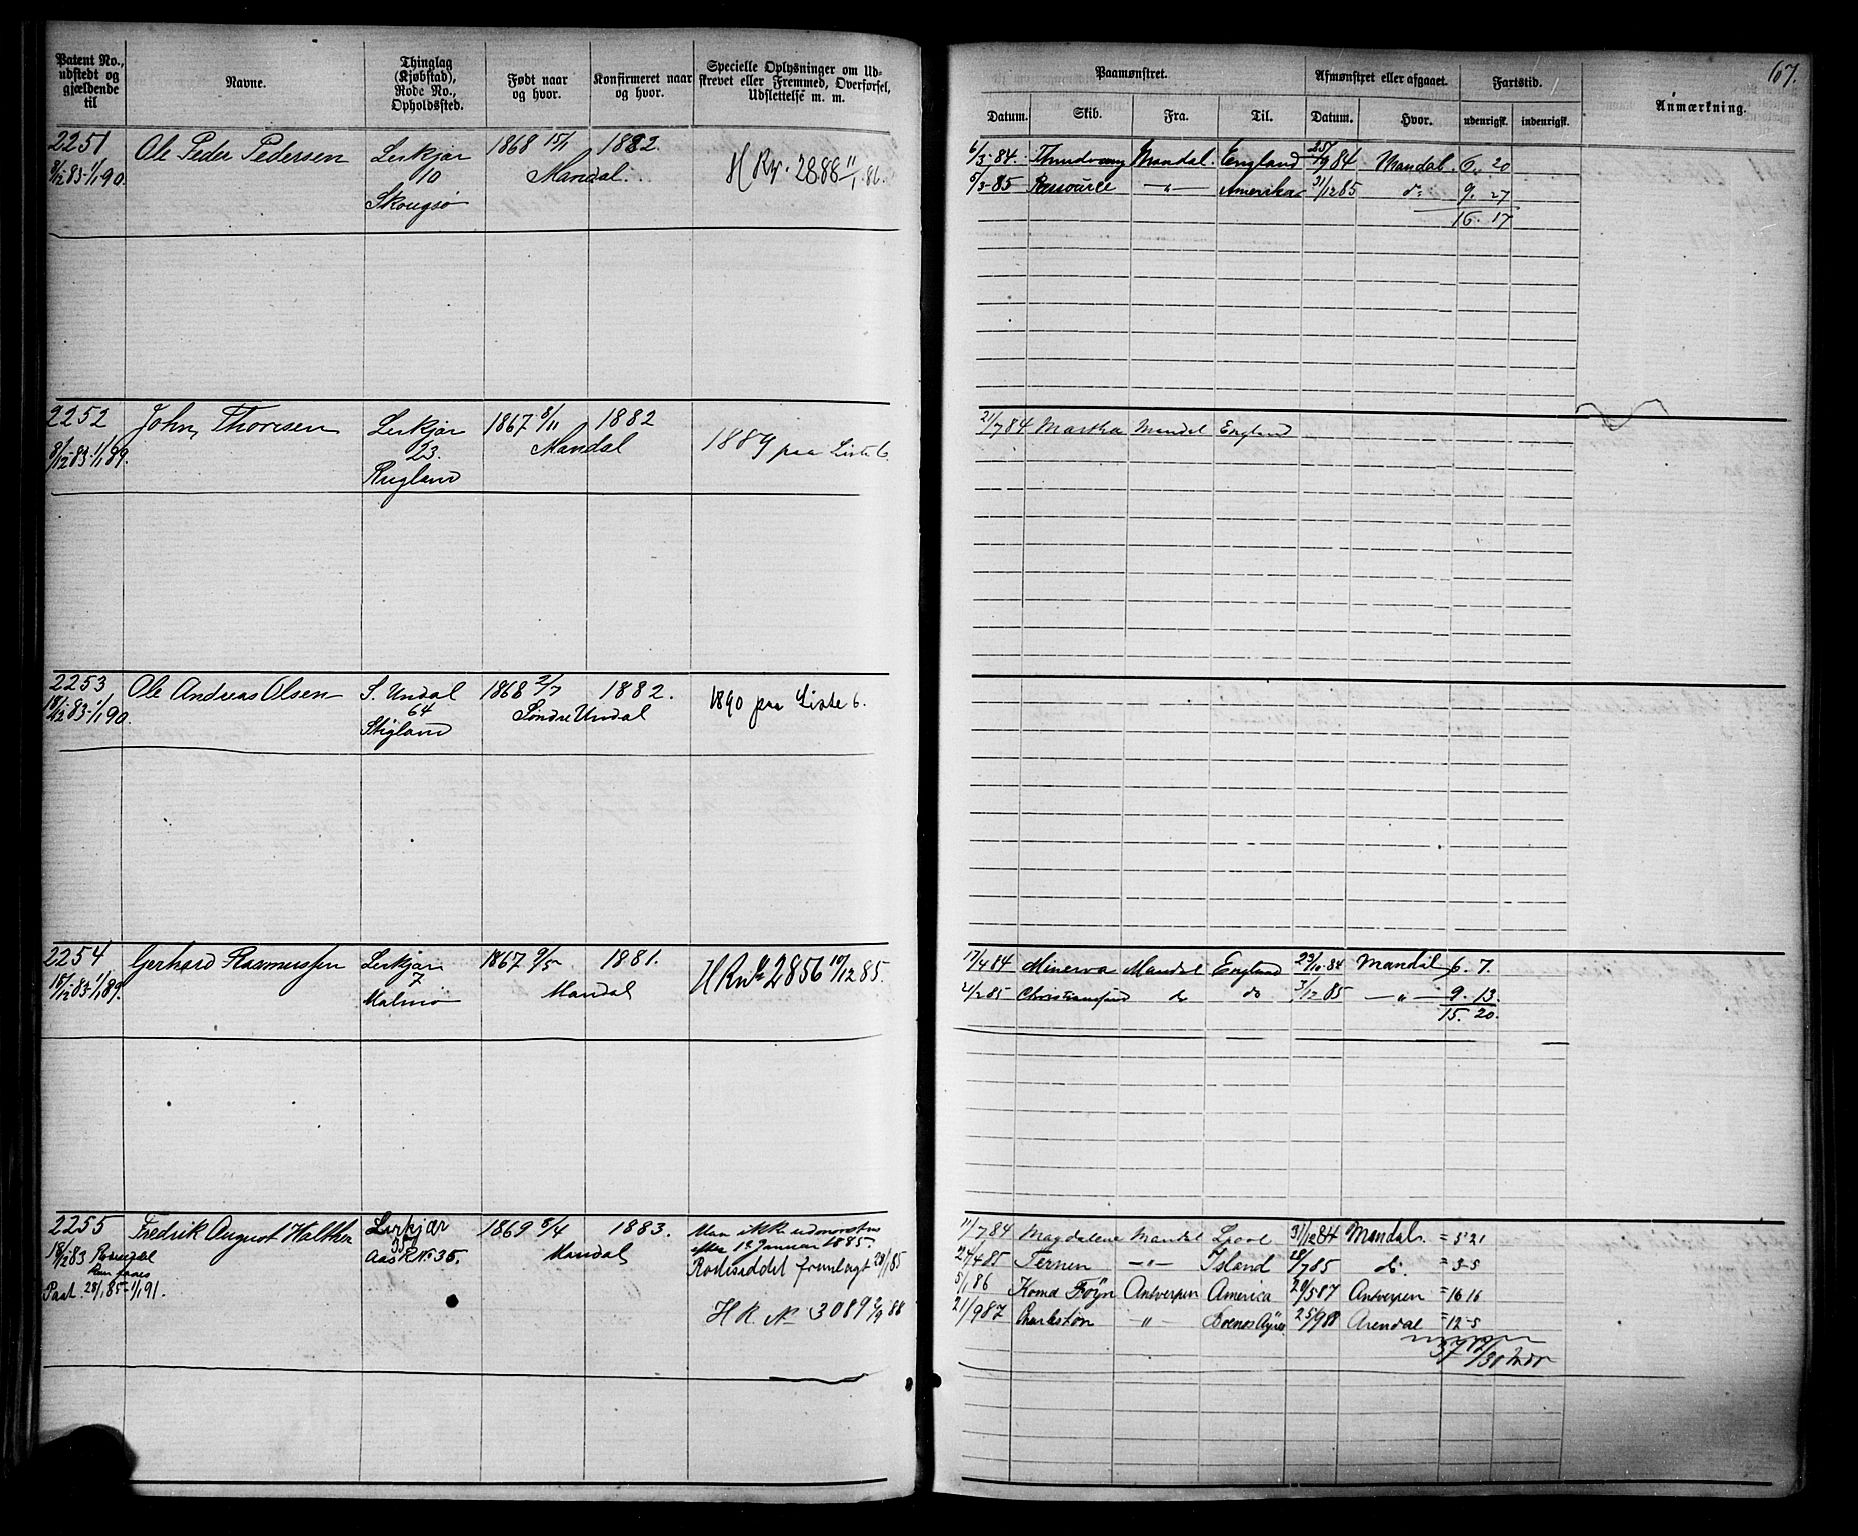 67.
Patent No., udstedt og gjældende til
Navne.
Thinglag (Kjøbstad), Rode No., Opholdssted.
Født naar og hvor.
Konfirmeret naar og hvor.
Specielle Oplysninger om Udskrevet eller Fremmed, Overførsel, Udslettelse m. m.
Paamønstret.
Afmønstret eller afgaaet.
Fartstid.
Anmærkning.
Datum.
Skib.
Fra.
Til.
Datum.
Hvor.
udenrigsk.
indenrigsk.
2251 Ole Peder Pedersen Lerkjær 1868 15/1 1882.
8/12 83-1/1 90. 10 Mandal. H Rw. 2888 11/1 86.
Skougsø
6/3-84. Mandal. England 84 Mandal. 6. 20
5/3-85 Ressource —"— Amerika 31/12 85 do 9. 27
16. 17
2252 John Thoresen Lerkjær 1867 8/11 1882
8/12 83-1/1 89. 23. Mandal 1889 paa Liste 6.
Rugland
21/7 84 Martha Mandal England
2253 Ole Andreas Olsen S. Undal 1868 2/7 1882.
18/12 83-1/1 90. 64 Søndre Undal 1890 paa Liste 6.
Stigland
2254 Gerhard Rasmussen Lerkjær 1867 9/5 1881.
15/12 83-1/1 89. 7 Mandal H Rw No 2856 19/12 85.
Malmø
17/4 84 Minerva Mandal England 29/10-84 Mandal 6. 7.
21/2 85 Christiansund do do 3/12 85 —"— 9. 13.
15. 20.
2255 Fredrik August Halthen Lerkjær 1869 8/4 1883.
18/12 83 Mandal
Aas R No 35.
Patt. 28/1 85-1/1 91.
Maa ikke udmønstres
efter 1 Januar 1885
Rodeseddel fremlagt 28/1 85
H R No 3089 2/9 88
11/7 84 Magdalene Mandal Lpool 31/12 84 Mandal. = 5 21
24/4 85 Ternen —"— Island 28/7 85 do = 3-5
5/1 86 Komd Føyn Antwerpen America 20/5 87 Antwerpen = 16 16
21/9 87 Charkston —"— Boenos Ayres 25/9 88 Arendal = 12-5
37